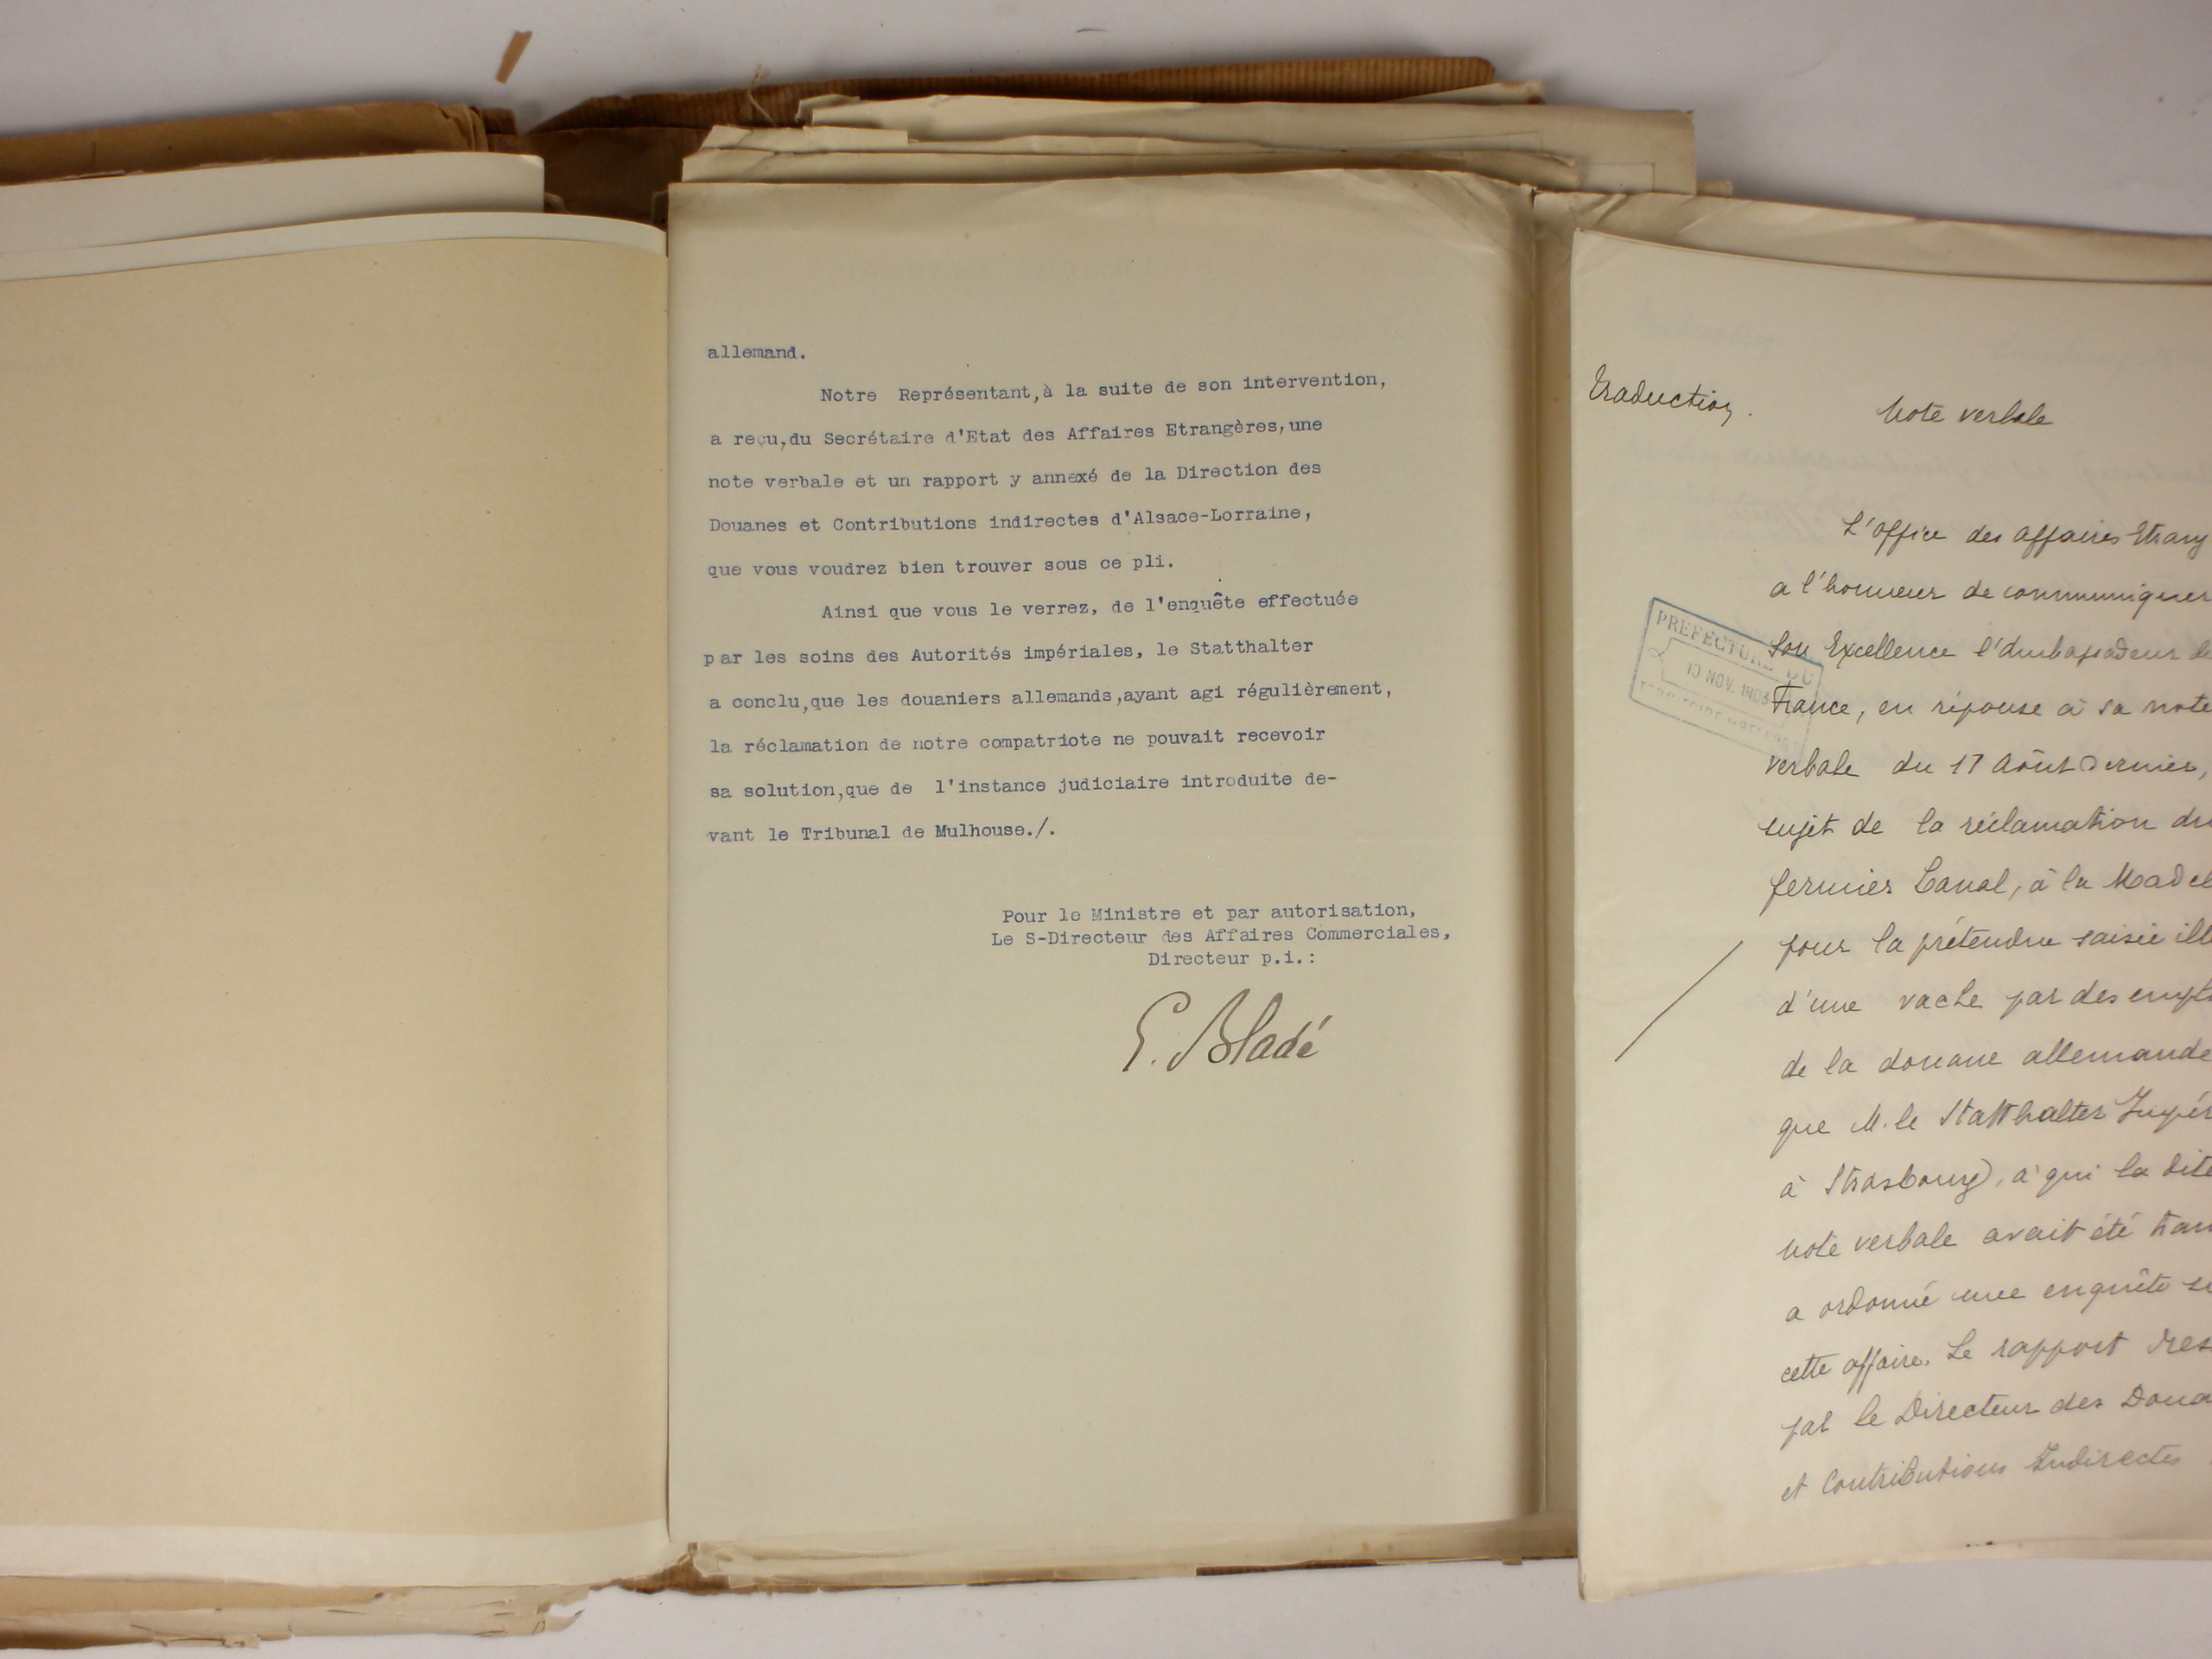 allemand.
Notre Représentant,à la suite de son intervention,
a reçu,du Secrétaire d'Etat des Affaires Etrangères,une
note verbale et un rapport y annexé de la Direction des
Douanes et Contributions indirectes d'Alsace-Lorraine,
que vous voudrez bien trouver sous ce pli.
Ainsi que vous le verrez, de l'enquête effectuée
par les soins des Autorités impériales, le Statthalter
a conclu,que les douaniers allemands,ayant agi régulièrement,
la réclamation de notre compatriote ne pouvait recevoir
sa solution,que de l'instance judiciaire introduite de-
vant le Tribunal de Mulhouse./.
Pour le Ministre et par autorisation,
Le S-Directeur des Affaires Commerciales,
Directeur p.i.:
Bladé
Traduction.
Note verbale
L'Office des Affaires Etrang
a l'honneur de communiquer
Son Excellence l'Ambassadeur de
France, en réponse à sa note
verbale du 17 Août dernier,
sujet de la réclamation du
fermier Lanal, à la Madel
pour la prétendue saisie ill
d'une vache par des empl
de la douane allemande
que M. le Statthalter Impér
à Strasbourg, à qui la dite
note verbale avait été tran
a ordonné une enquête
cette affaire. Le rapport dres
par le Directeur des Doua
et Contributions Indirectes
PREFECTURE DU
10 NOV. 1903